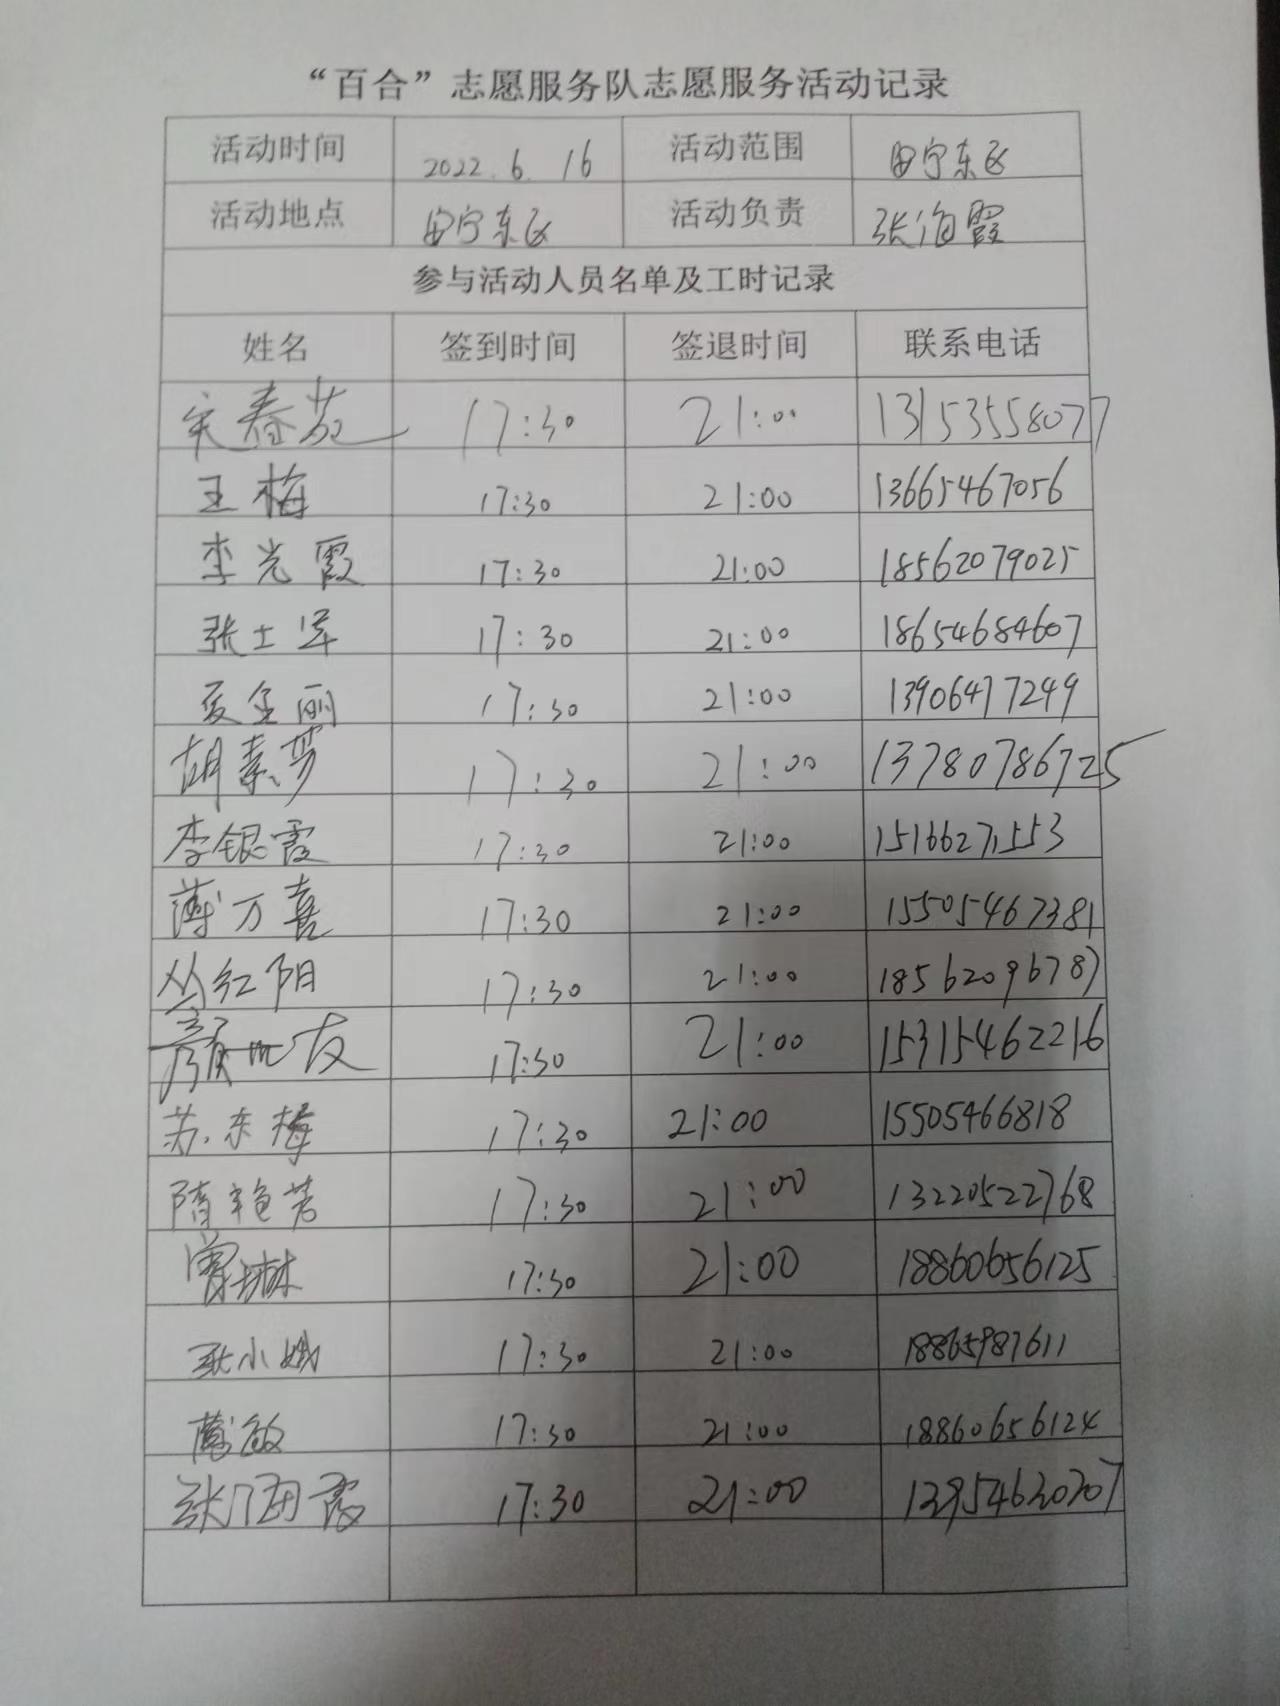 “百合”志愿服务队志愿服务活动记录
活动时间 2022.6.16 活动范围 田宁东区
活动地点 田宁东区 活动负责 张海霞
参与活动人员名单及工时记录
姓名 签到时间 签退时间 联系电话
宋春苑 17:30 21:00 13153558077
王梅 17:30 21:00 13665467056
李光霞 17:30 21:00 18562079025
张士军 17:30 21:00 18654684607
夏金丽 17:30 21:00 13906477249
胡素芳 17:30 21:00 13780786725
李银霞 17:30 21:00 15166271553
薄万喜 17:30 21:00 15505467381
丛红阳 17:30 21:00 18562096787
颜世友 17:30 21:00 15315462216
苏东梅 17:30 21:00 15505466818
隋艳芳 17:30 21:00 13220522768
17:30 21:00 18860656125
耿小娥 17:30 21:00 18865987611
敏 17:30 21:00 18860656124
张海霞 17:30 21:00 13954630707